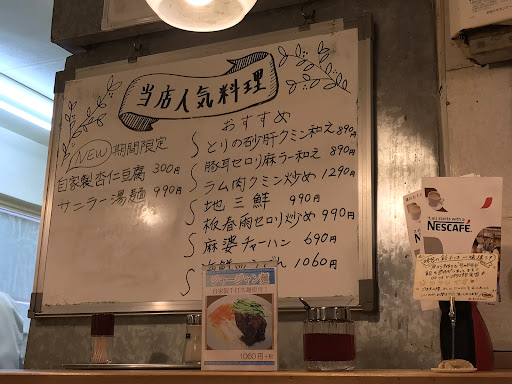 当店人気料理
おすすめ
NEW 期間限定
自家製杏仁豆腐 300円
サンラー湯麺 990円
とりの砂肝クミン和え 890円
豚耳セロリ麻ラー和え 890円
ラム肉クミン炒め 1290円
地三鮮 990円
板春雨セロリ炒め 990円
麻婆チャーハン 690円
1060円
ジャージャン麺
自家製手打ち麺使用!
1060円
It all starts with a
NESCAFÉ